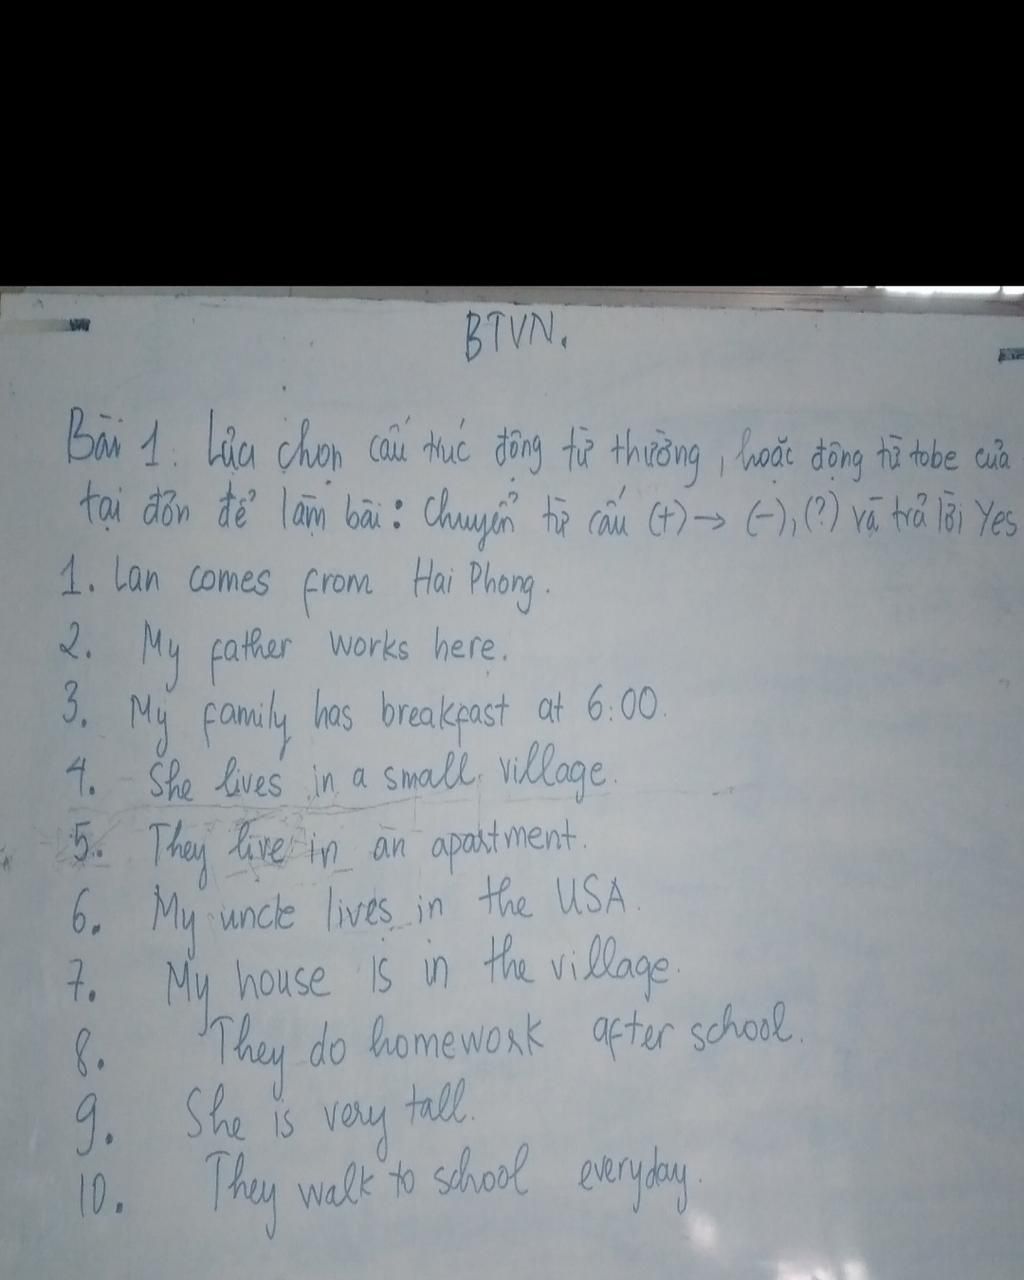 BTVN.
Bài 1. Lựa chọn cấu trúc động từ thường, hoặc động từ tobe của
tại đơn để làm bài: Chuyển từ câu (+) → (-), (?) và trả lời Yes
1. Lan comes from Hai Phong.
2. My father works here.
3. My family has breakfast at 6:00.
4. She lives in a small village.
5. They live in an apartment.
6. My uncle lives in the USA.
7. My house is in the village.
8. They do homework after school.
9. She is very tall.
10. They walk to school everyday.